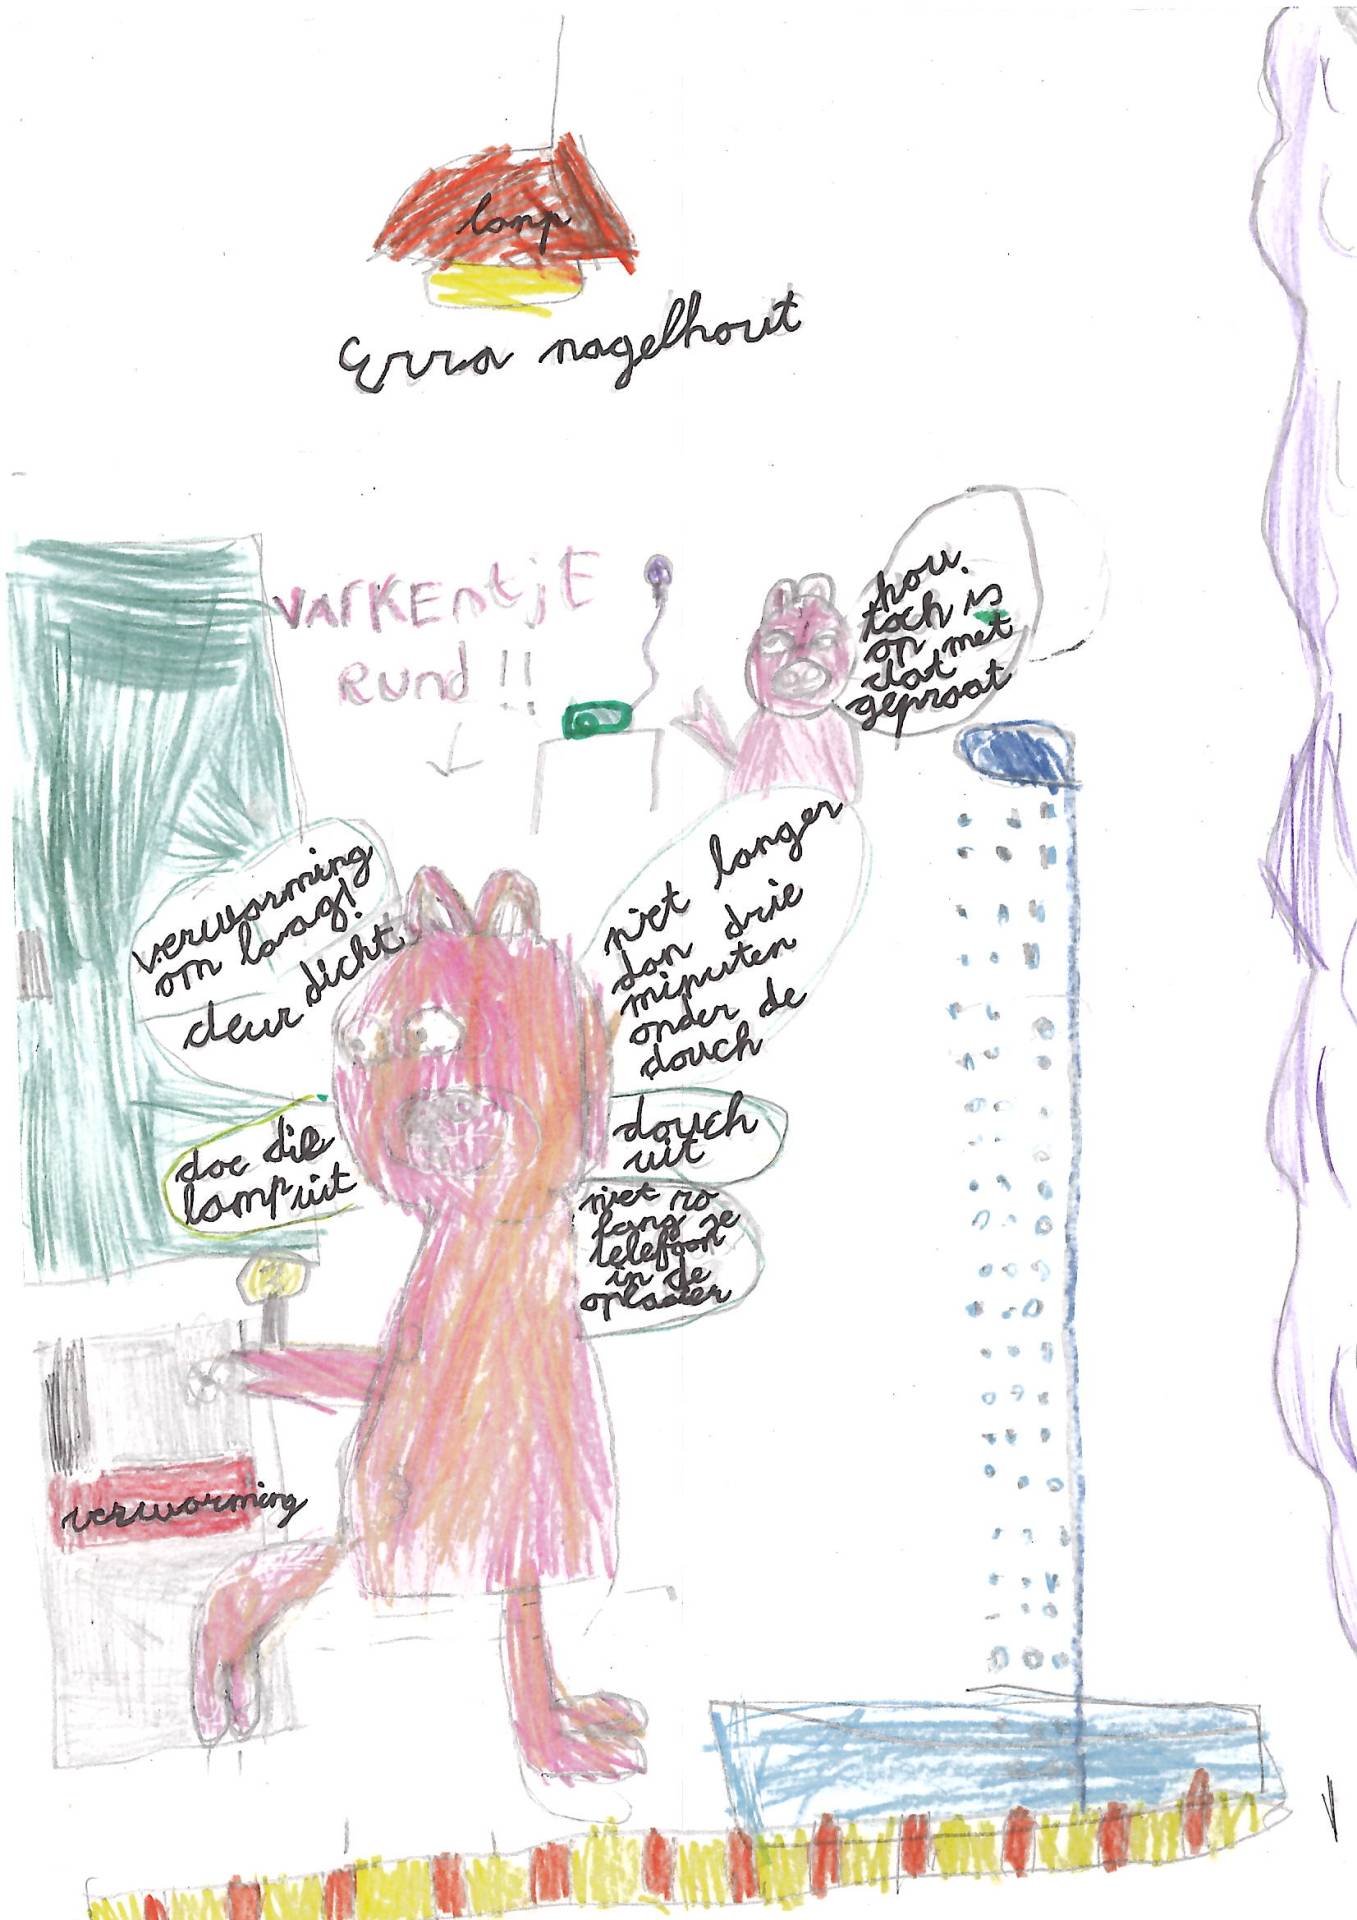 lamp
Erra nagelhout
VarKEntjE
rund!!
hou.
toch is
op met
dat
gepraat
verwarming
om laag!
deur dicht
niet langer
dan drie
minuten
onder de
douch
doe die
lamp uit
douch
uit
niet zo
lang je
telefoon
in de
oplader
verwarming